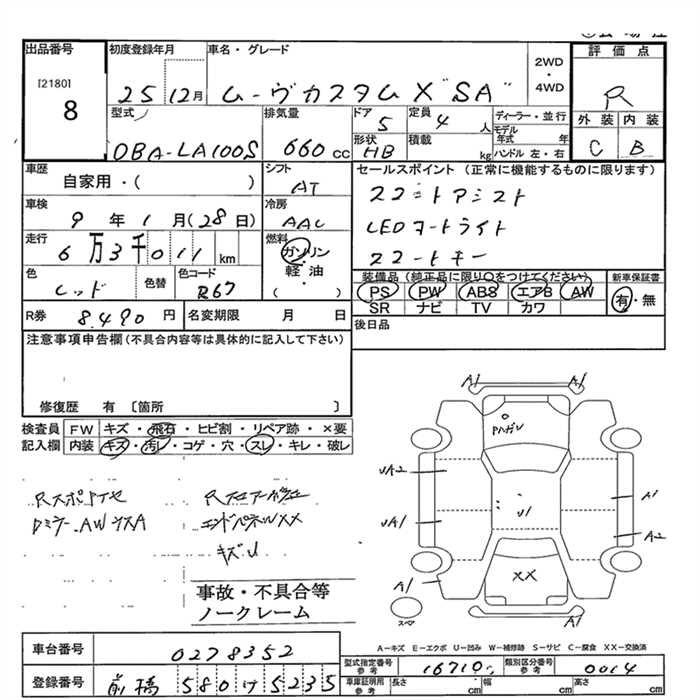 出品番号
[2180]
8
初度登録年月
25 12月
車名・グレード
ムーヴカスタムX "SA"
2WD
・
4WD
評価点
R
外装 内装
C B
型式
DBA-LA100S
排気量
660cc
ドア
5
定員
4 人
形状
HB
積載
kg
ディーラー・並行
モデル年式 年
ハンドル 左・右
車歴
自家用・( )
シフト
AT
車検
9年1月(28日)
冷房
AAC
走行
6万3千011km
燃料
ガソリン
・
軽油
・
( )
色
レッド
色替
色コード
R67
R券 8,490円
名変期限 月 日
セールスポイント (正常に機能するものに限ります)
LEDヘッドライト
装備品 (純正品に限り○をつけてください)
新車保証書
PS PW ABS エアB AW
SR ナビ TV カワ
有・無
後日品
注意事項申告欄 (不具合内容等は具体的に記入して下さい)
修復歴 有 〔箇所 〕
検査員
記入欄
FW キズ・飛石・ヒビ割・リペア跡・×要
内装 キズ・汚レ・コゲ・穴・スレ・キレ・破レ
エンドパネルXX
キズU
事故・不具合等
ノークレーム
A1 A1
UA2
UA1
U1
A1
A2
XX
A1 A1
スペア
A-キズ E-エクボ U-凹み W-補修跡 S-サビ C-腐食 XX-交換済
車台番号 0278352
登録番号 前橋 580 け 5235
型式指定番号
参考
16710
類別区分番号
参考
0014
車庫証明用
参考
長さ 幅 高さ
cm cm cm